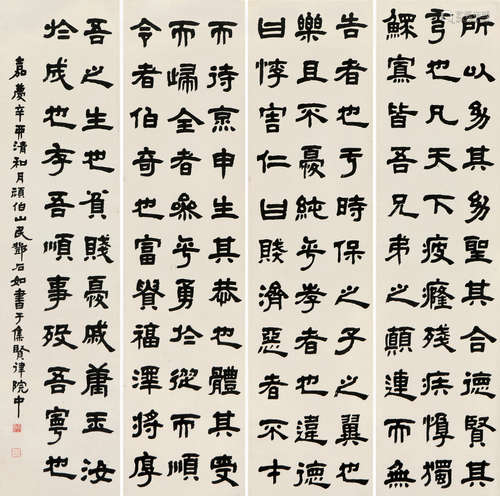 所以幼其幼聖其合德賢其
秀也凡天下疲癃殘疾惸獨
鰥寡皆吾兄弟之顛連而無
告者也于時保之子之翼也
樂且不憂純乎孝者也違德
曰悖害仁曰賊濟惡者不才
而待烹申生其恭也體其受
而歸全者參乎勇於從而順
令者伯奇也富貴福澤將厚
吾之生也貧賤憂戚庸玉汝
於成也存吾順事歿吾寧也
嘉慶辛酉清和月頑伯山民鄧石如書于集賢律院中